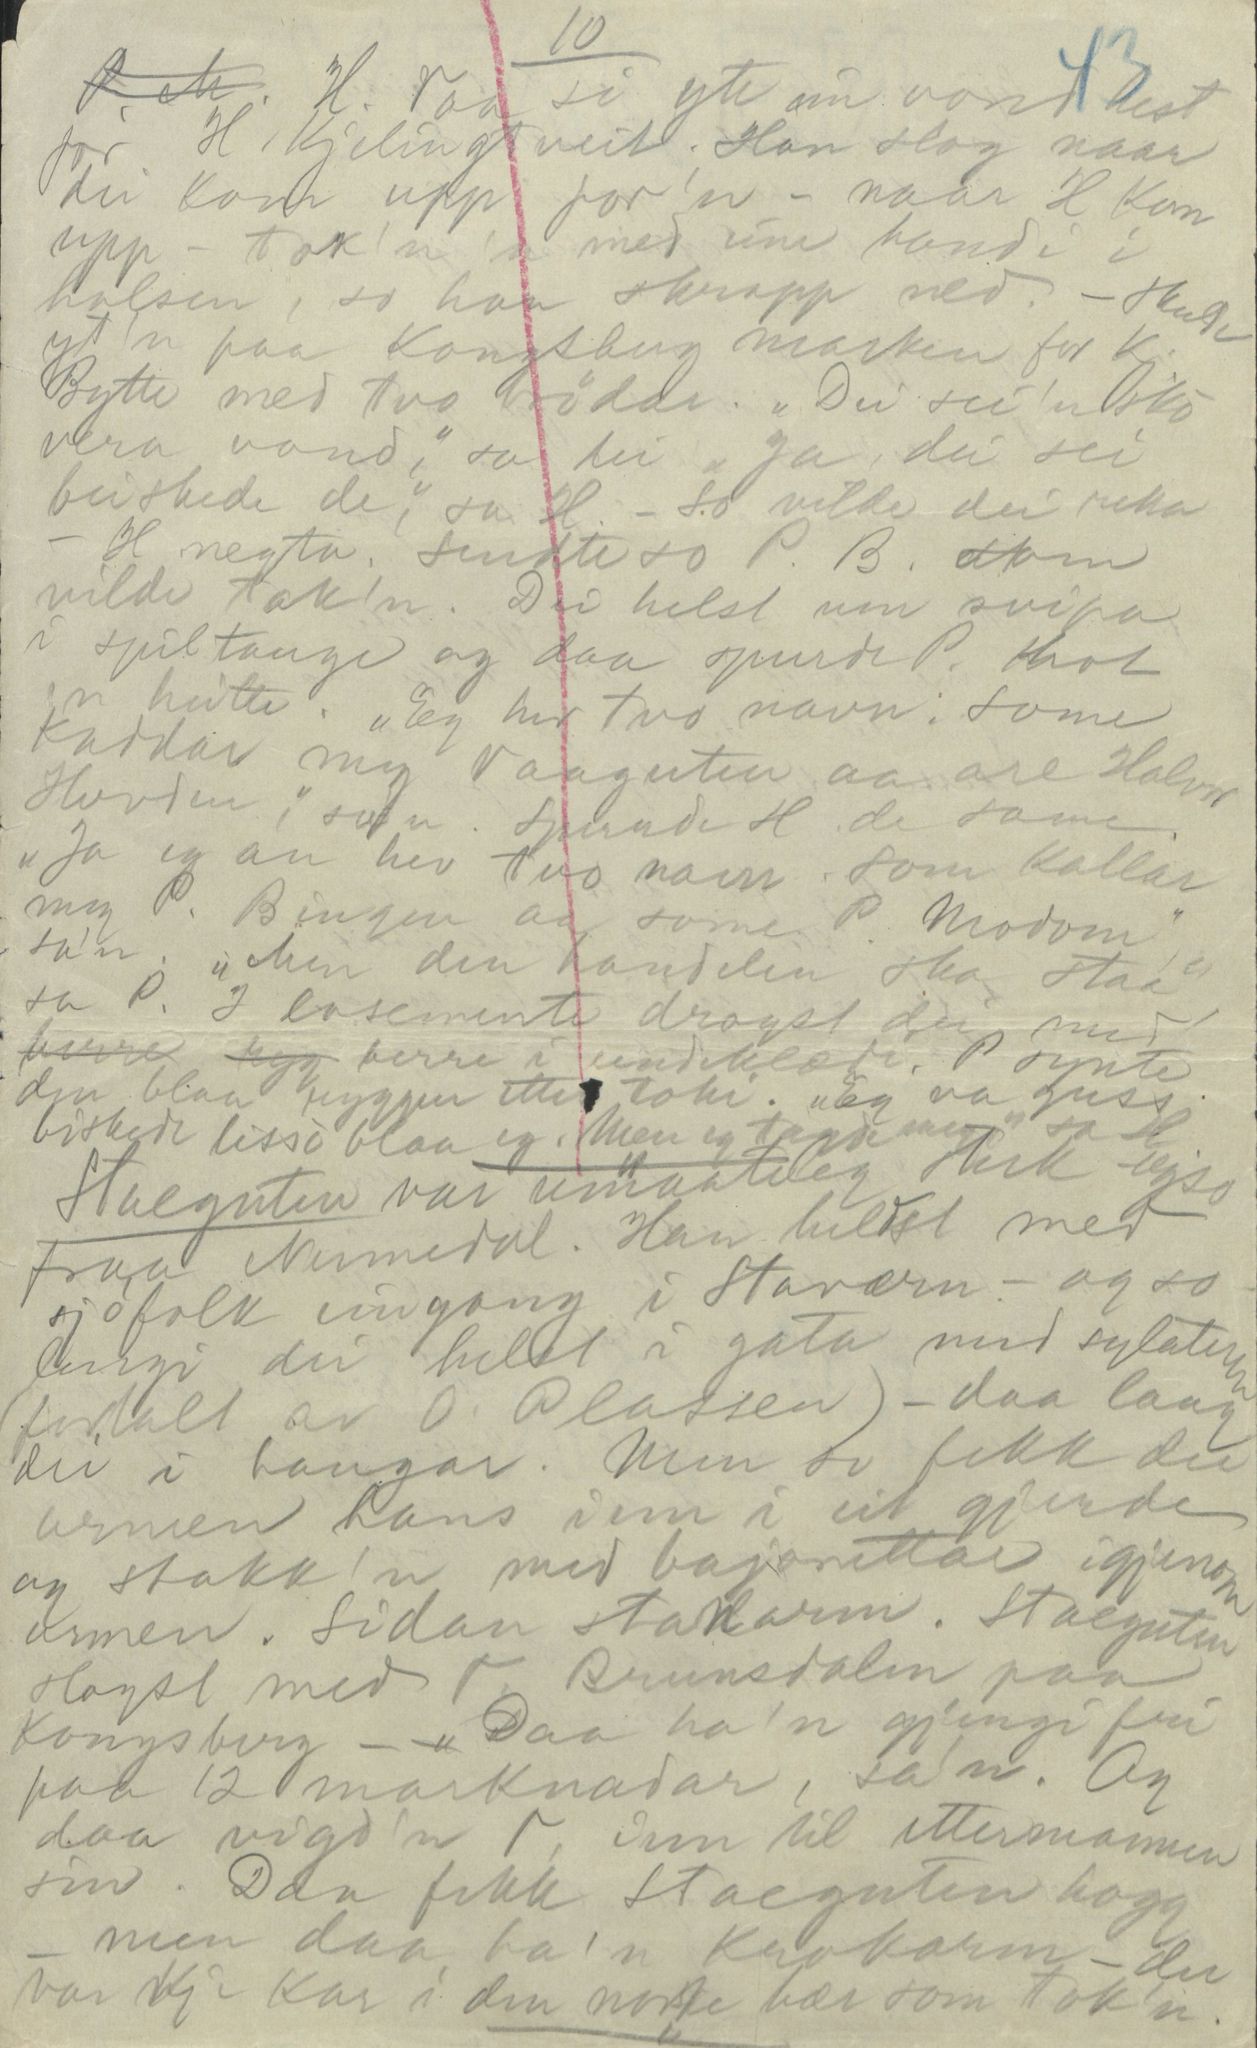 10
43
P. M. H. Vaa si yte ein vond hest
for H. Kjelingtveit. Han slog naar
dei kom upp for'n - naar H kom
upp - tok'n 'n med eine handi i
halsen, so han skrapp ned. - Skulde
yt'n paa Kongsberg marken for K.
Bytte med tvo brödar. „Dei sei'n skö
vera vond," sa dei „Ja, dei sei
beiskede de," sa H. - So vilde dei
- H negta. Sendte so P. B. som
vilde tak'n. Dei helst um svipa
i spiltauge og daa spurde P. hot
'n heitte. „Eg hev tvo navn. Some
kaddar meg Vaaguten aa are Halvor
Hovden," sa'n. Spurde H de same.
„Ja eg an hev tvo navn. Som kallar
meg P. Bingen aa some P. Modom"
sa'n. „Men den handelen ska staa"
sa P. I losemente drogst dei med
berre i underklæde. P synte
den blaa ryggen etter toki. „Eg va guss
biskede lissö blaa eg. Men eg tagde meg" sa H
Staeguten var umaateleg sterk
fraa Numedal. Han heldst med
sjöfolk eingong i Staværn - og so
lengi dei helst i gata med sylatern
(fortalt av O. Plassen) - daa laag
dei i haugar. Men so fekk dei
armen hans inn i eit gjerde
og stakk'n med bajonettar igjenom
armen. Sidan starkarm. Staeguten
slogst med T. Brunsdalen paa
Kongsberg - „Daa ha'n gjengi fri
paa 12 marknadar, sa'n. Og
daa vigd'n T. inn til ettermannen
sin. Daa fekk Staeguten hogg
- men daa ha'n krokarm - der
var kje kar i den norske hær som tok'n.